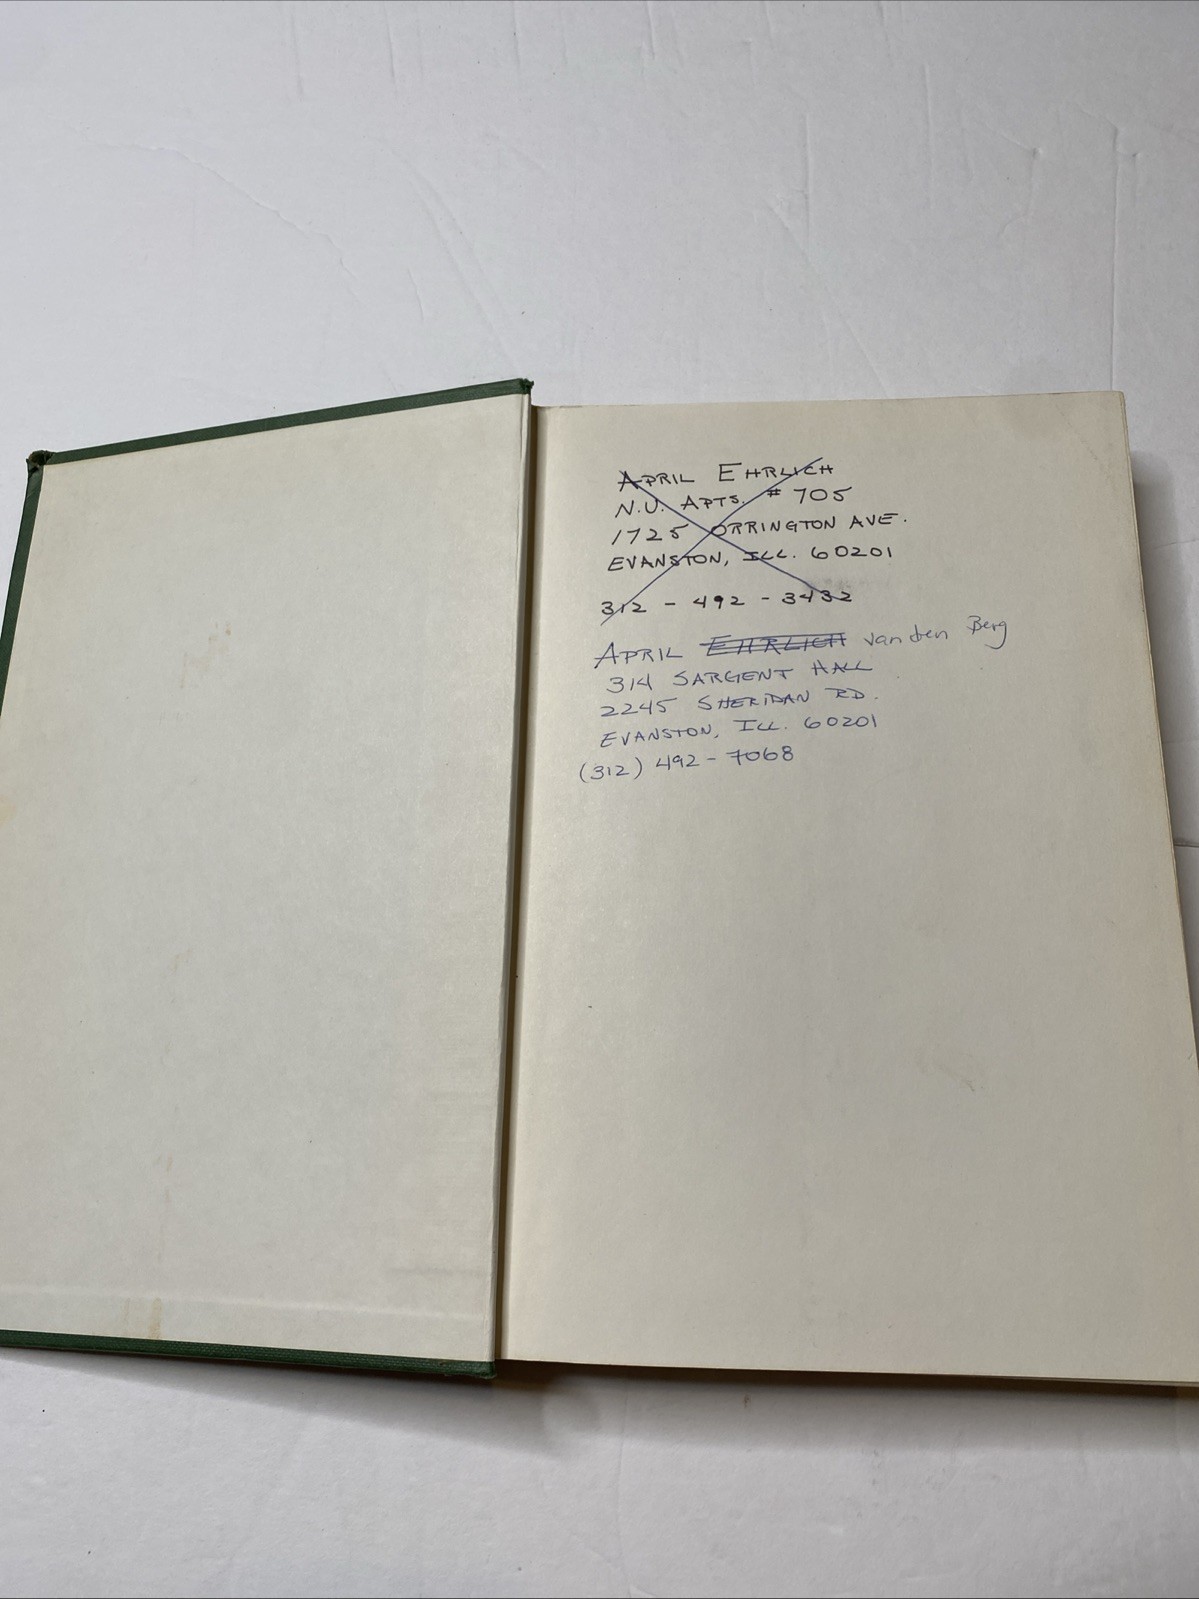 APRIL EHRLICH
N.U. APTS. # 705
1725 ORRINGTON AVE.
EVANSTON, ILL. 60201
312 - 492 - 3432
APRIL EHRLICH van den Berg
314 SARGENT HALL
2245 SHERIDAN RD.
EVANSTON, ILL. 60201
(312) 492 - 7068